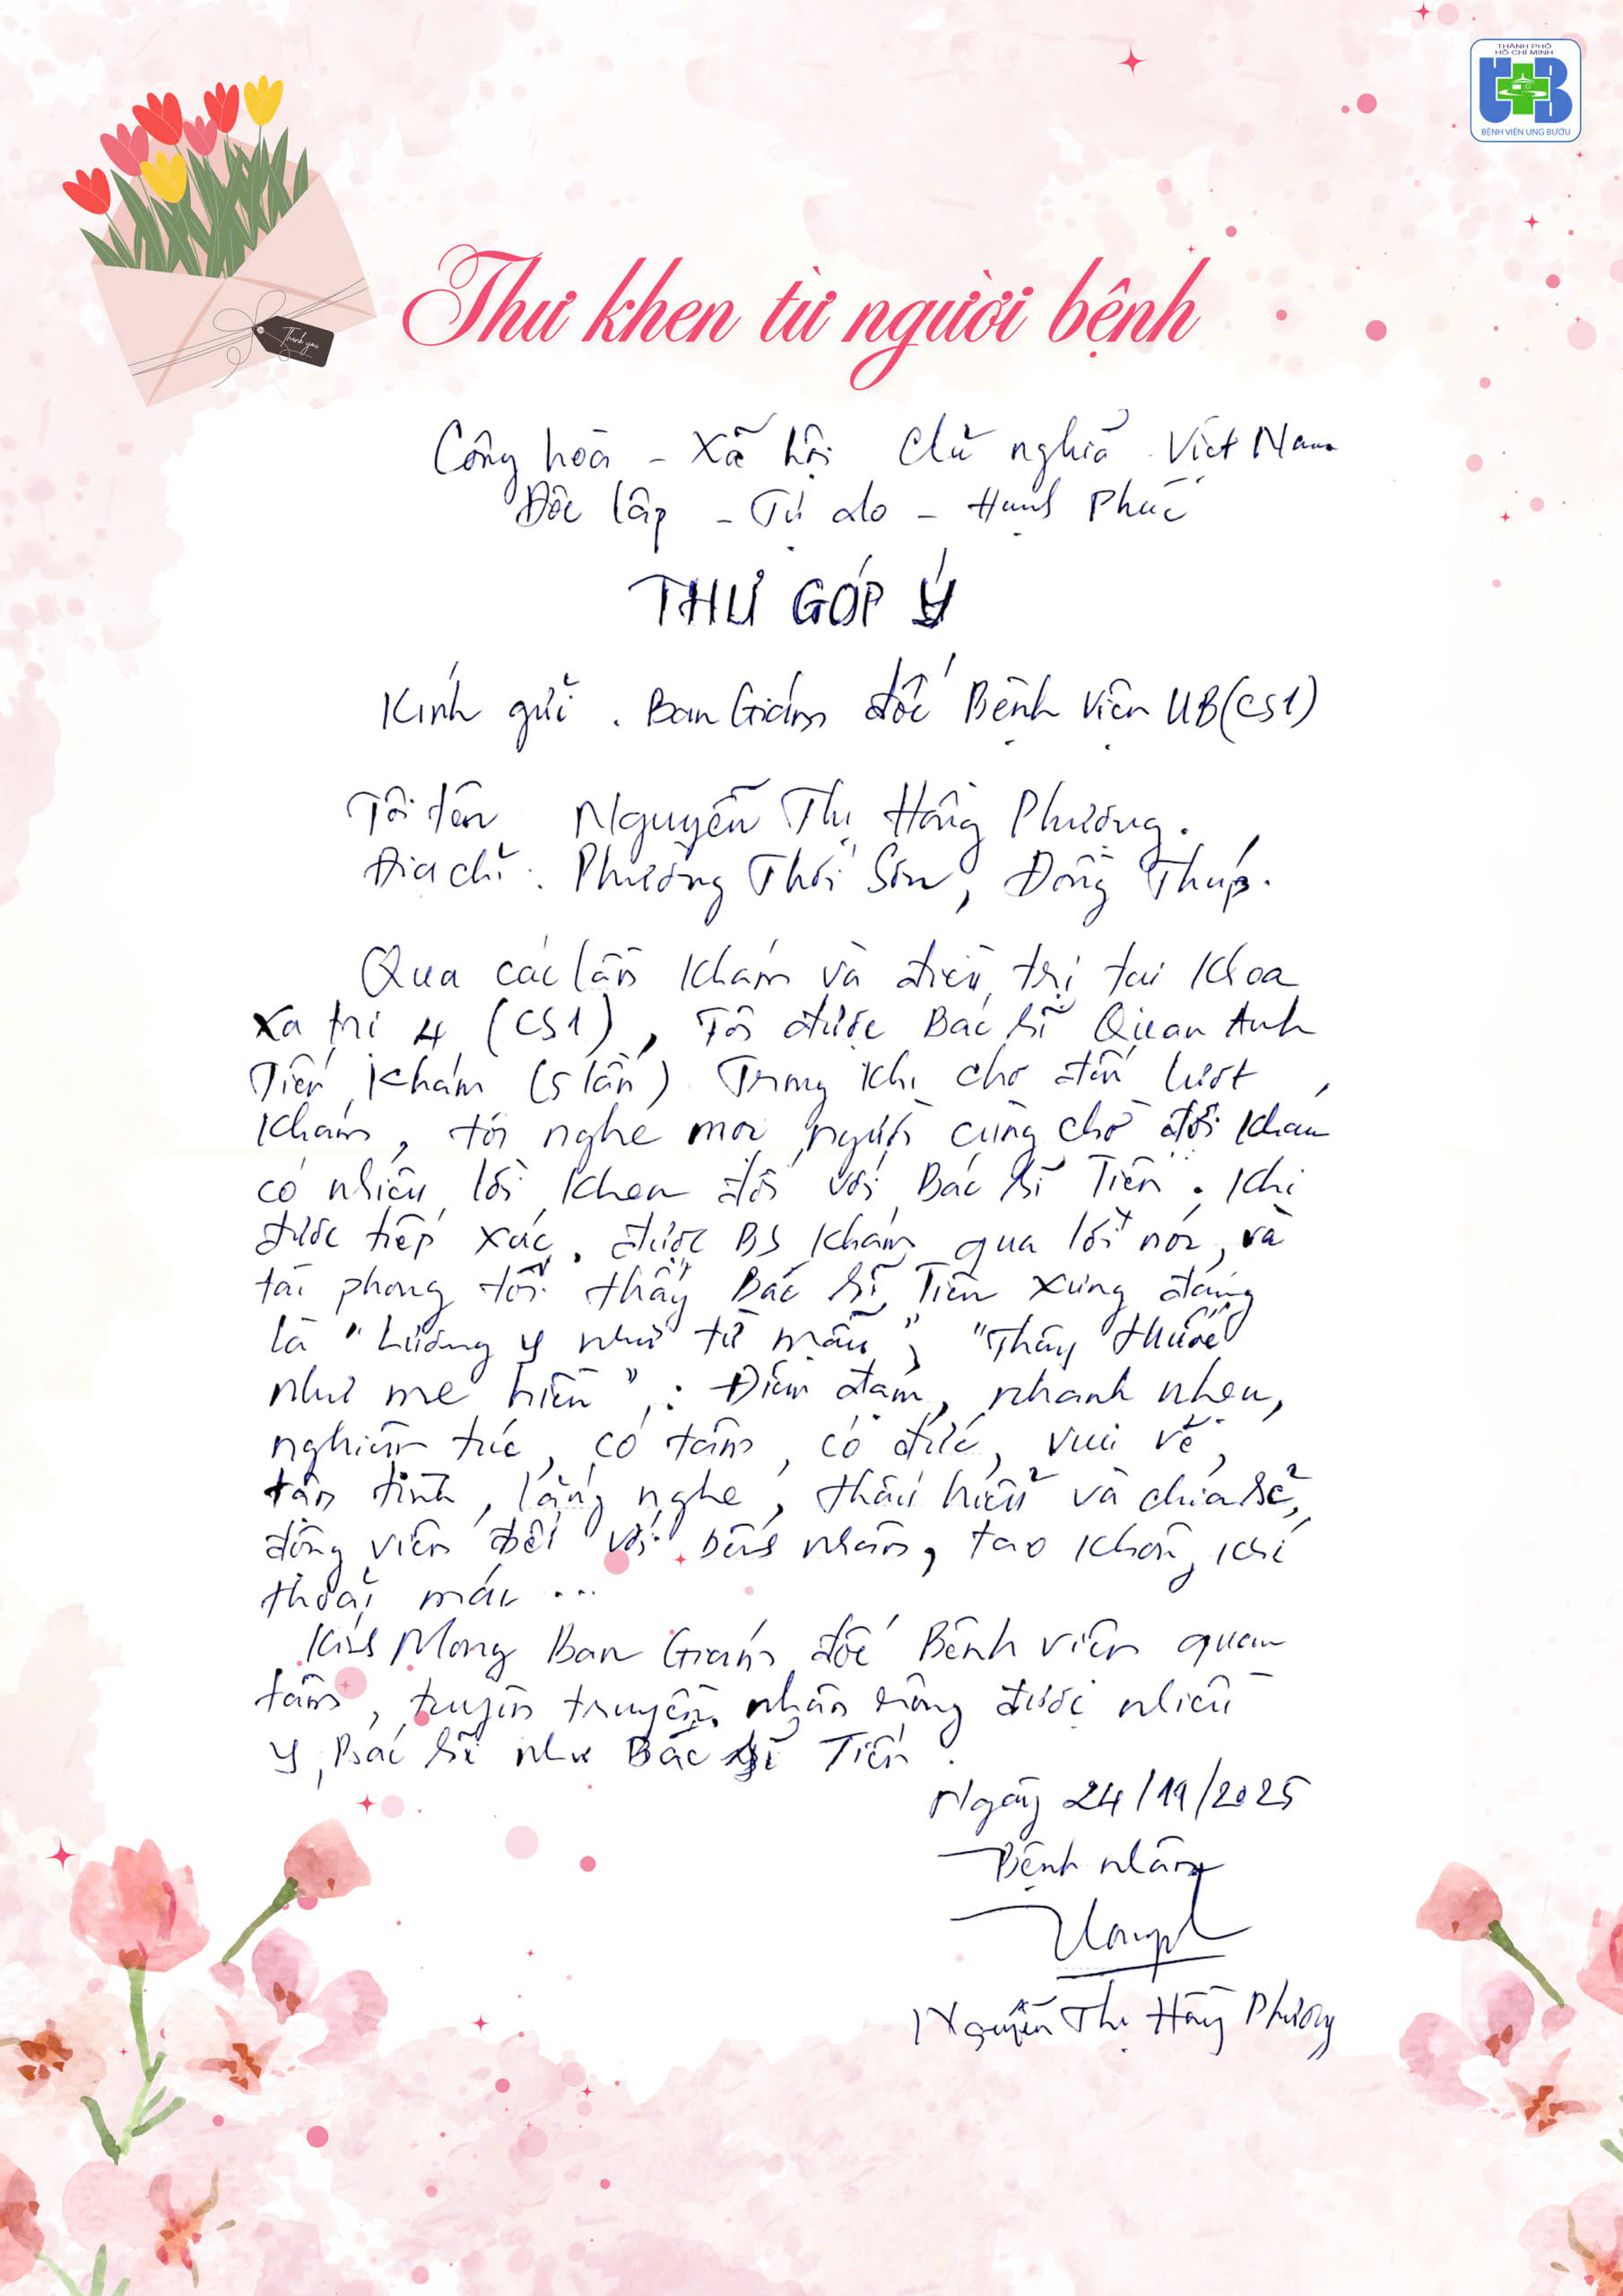 THÀNH PHỐ
HỒ CHÍ MINH
UB
BỆNH VIỆN UNG BƯỚU
Thank you
Thư khen từ người bệnh
Công hòa - Xã hội Chủ nghĩa Việt Nam
Độc lập - Tự do - Hạnh Phúc
THƯ GÓP Ý
Kính gửi . Ban Giám đốc Bệnh Viện UB (CS1)
Tôi tên Nguyễn Thị Hồng Phương.
Địa chỉ : Phường Thới Sơn, Đồng Tháp.
Qua các lần khám và điều trị tại Khoa
Xạ trị 4 (CS1), Tôi được Bác sĩ Quan Anh
Tiến khám (5 lần) Trong khi chờ đến lượt
khám, tôi nghe mọi người cùng chờ đợi khám
có nhiều lời khen đối với Bác sĩ Tiến. Khi
được tiếp xúc, được BS khám qua lời nói, và
tác phong tôi thấy Bác sĩ Tiến xứng đáng
là "Lương y như từ mẫu", "Thầy thuốc
như mẹ hiền", : Điềm đạm, nhanh nhẹn,
nghiêm túc, có tâm, có đức, vui vẻ,
tận tình, lắng nghe, thấu hiểu và chia sẻ,
động viên đối với bệnh nhân, tạo không khí
thoải mái ...
Kính Mong Ban Giám đốc Bệnh viện quan
tâm, tuyên truyền, nhân rộng được nhiều
Y, Bác sĩ như Bác sĩ Tiến.
Ngày 24/11/2025
Bệnh nhân
Nguyễn Thị Hồng Phương